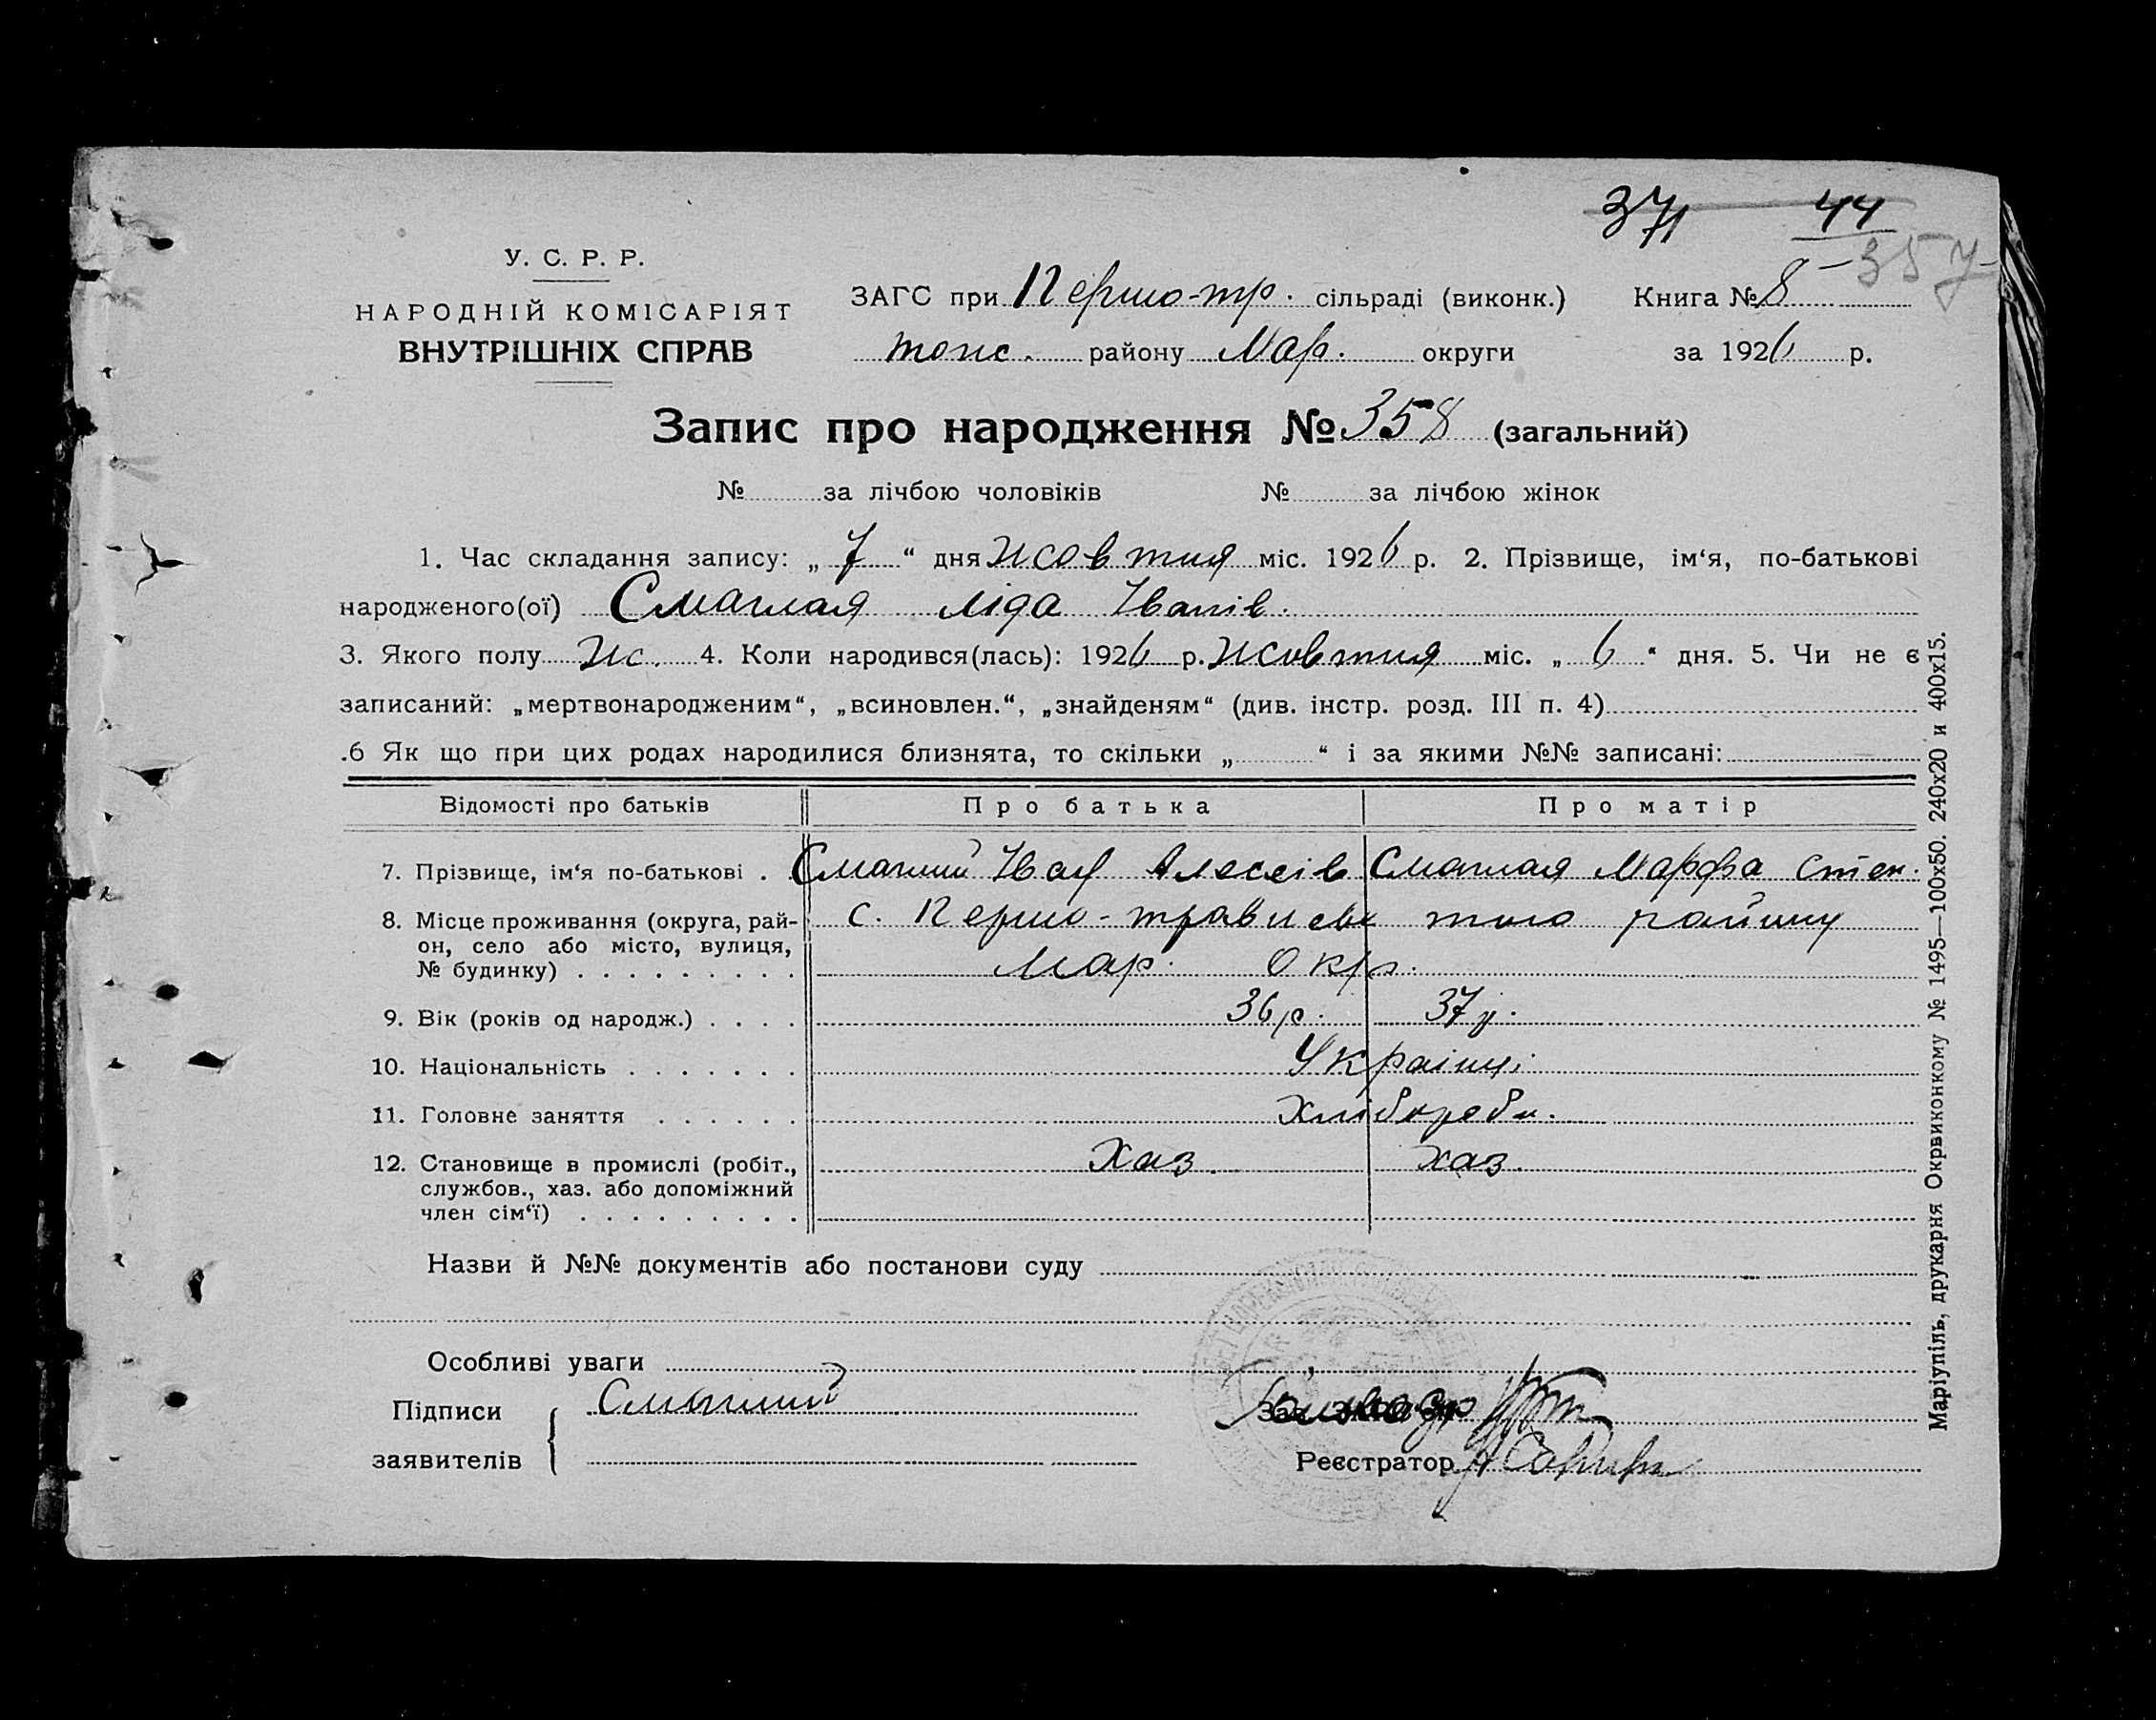 371 44
У. С. Р. Р.
357
НАРОДНІЙ КОМІСАРІЯТ
ВНУТРІШНІХ СПРАВ
ЗАГС при Першо-тр. сільраді (виконк.) Книга № 8
тогис. району Мар. округи за 1926 р.
Запис про народження № 358 (загальний)
№ за лічбою чоловіків № за лічбою жінок
1. Час складання запису: „ 7 “ дня жовтня міс. 1926 р. 2. Прізвище, ім‘я, по-батькові
народженого(ої) Смаглая Ліда Іванів.
3. Якого полу ж. 4. Коли народився(лась): 1926 р. жовтня міс. „ 6 “ дня. 5. Чи не є
записаний: „мертвонародженим“, „всиновлен.“, „знайденям“ (див. інстр. розд. III п. 4)
.6 Як що при цих родах народилися близнята, то скільки „ “ і за якими №№ записані:
Відомості про батьків Про батька Про матір
7. Прізвище, ім‘я по-батькові . Смаглий Іван Алексів Смаглая Марфа Степ.
8. Місце проживання (округа, рай-
он, село або місто, вулиця,
№ будинку) . . . . . . . . .
с. Першо-травневе того району
Мар. Окр.
9. Вік (років од народж.) . . . . 36 р. 37 р.
10. Національність . . . . . . . Українці
11. Головне заняття . . . . . . Хлібороби.
12. Становище в промислі (робіт.,
службов., хаз. або допоміжний
член сім‘ї) . . . . . . . . .
Хаз. хаз.
Назви й №№ документів або постанови суду
Особливі уваги
Підписи
заявителів
Смаглий
Реєстратор
Маріупіль, друкарня Окрвиконкому № 1495—100х50. 240х20 и 400х15.